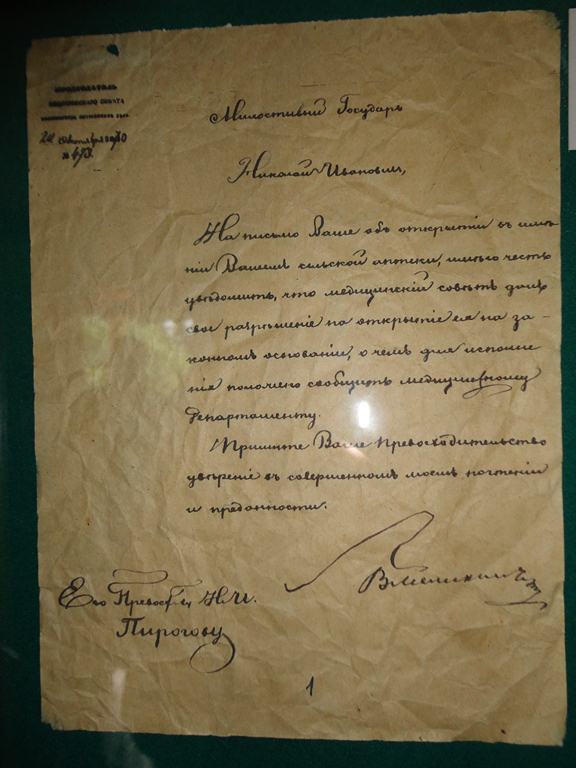 ПРЕДСѢДАТЕЛЬ
МЕДИЦИНСКАГО СОВѢТА
МИНИСТЕРСТВА ВНУТРЕННИХЪ ДѢЛЪ
24 октября 1870
№ 493.
Милостивый Государь
Николай Ивановичъ,
На письмо Ваше объ открытіи въ имѣ-
ніи Вашемъ сельской аптеки, имѣю честь
увѣдомить, что медицинскій совѣтъ далъ
свое разрѣшеніе на открытіе ея на за-
конномъ основаніи, о чемъ для исполне
нія положено сообщить медицинскому
Департаменту.
Примите Ваше Превосходительство
увѣреніе въ совершенномъ моемъ почтеніи
и преданности.
Его Превосх. Н. И.
Пирогову
1